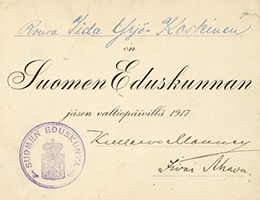 Rouva Iida Yrjö-Koskinen
on
Suomen Eduskunnan
jäsen valtiopäivillä 1917
Kullervo Manner
Iivar Ahava.
SUOMEN EDUSKUNTA